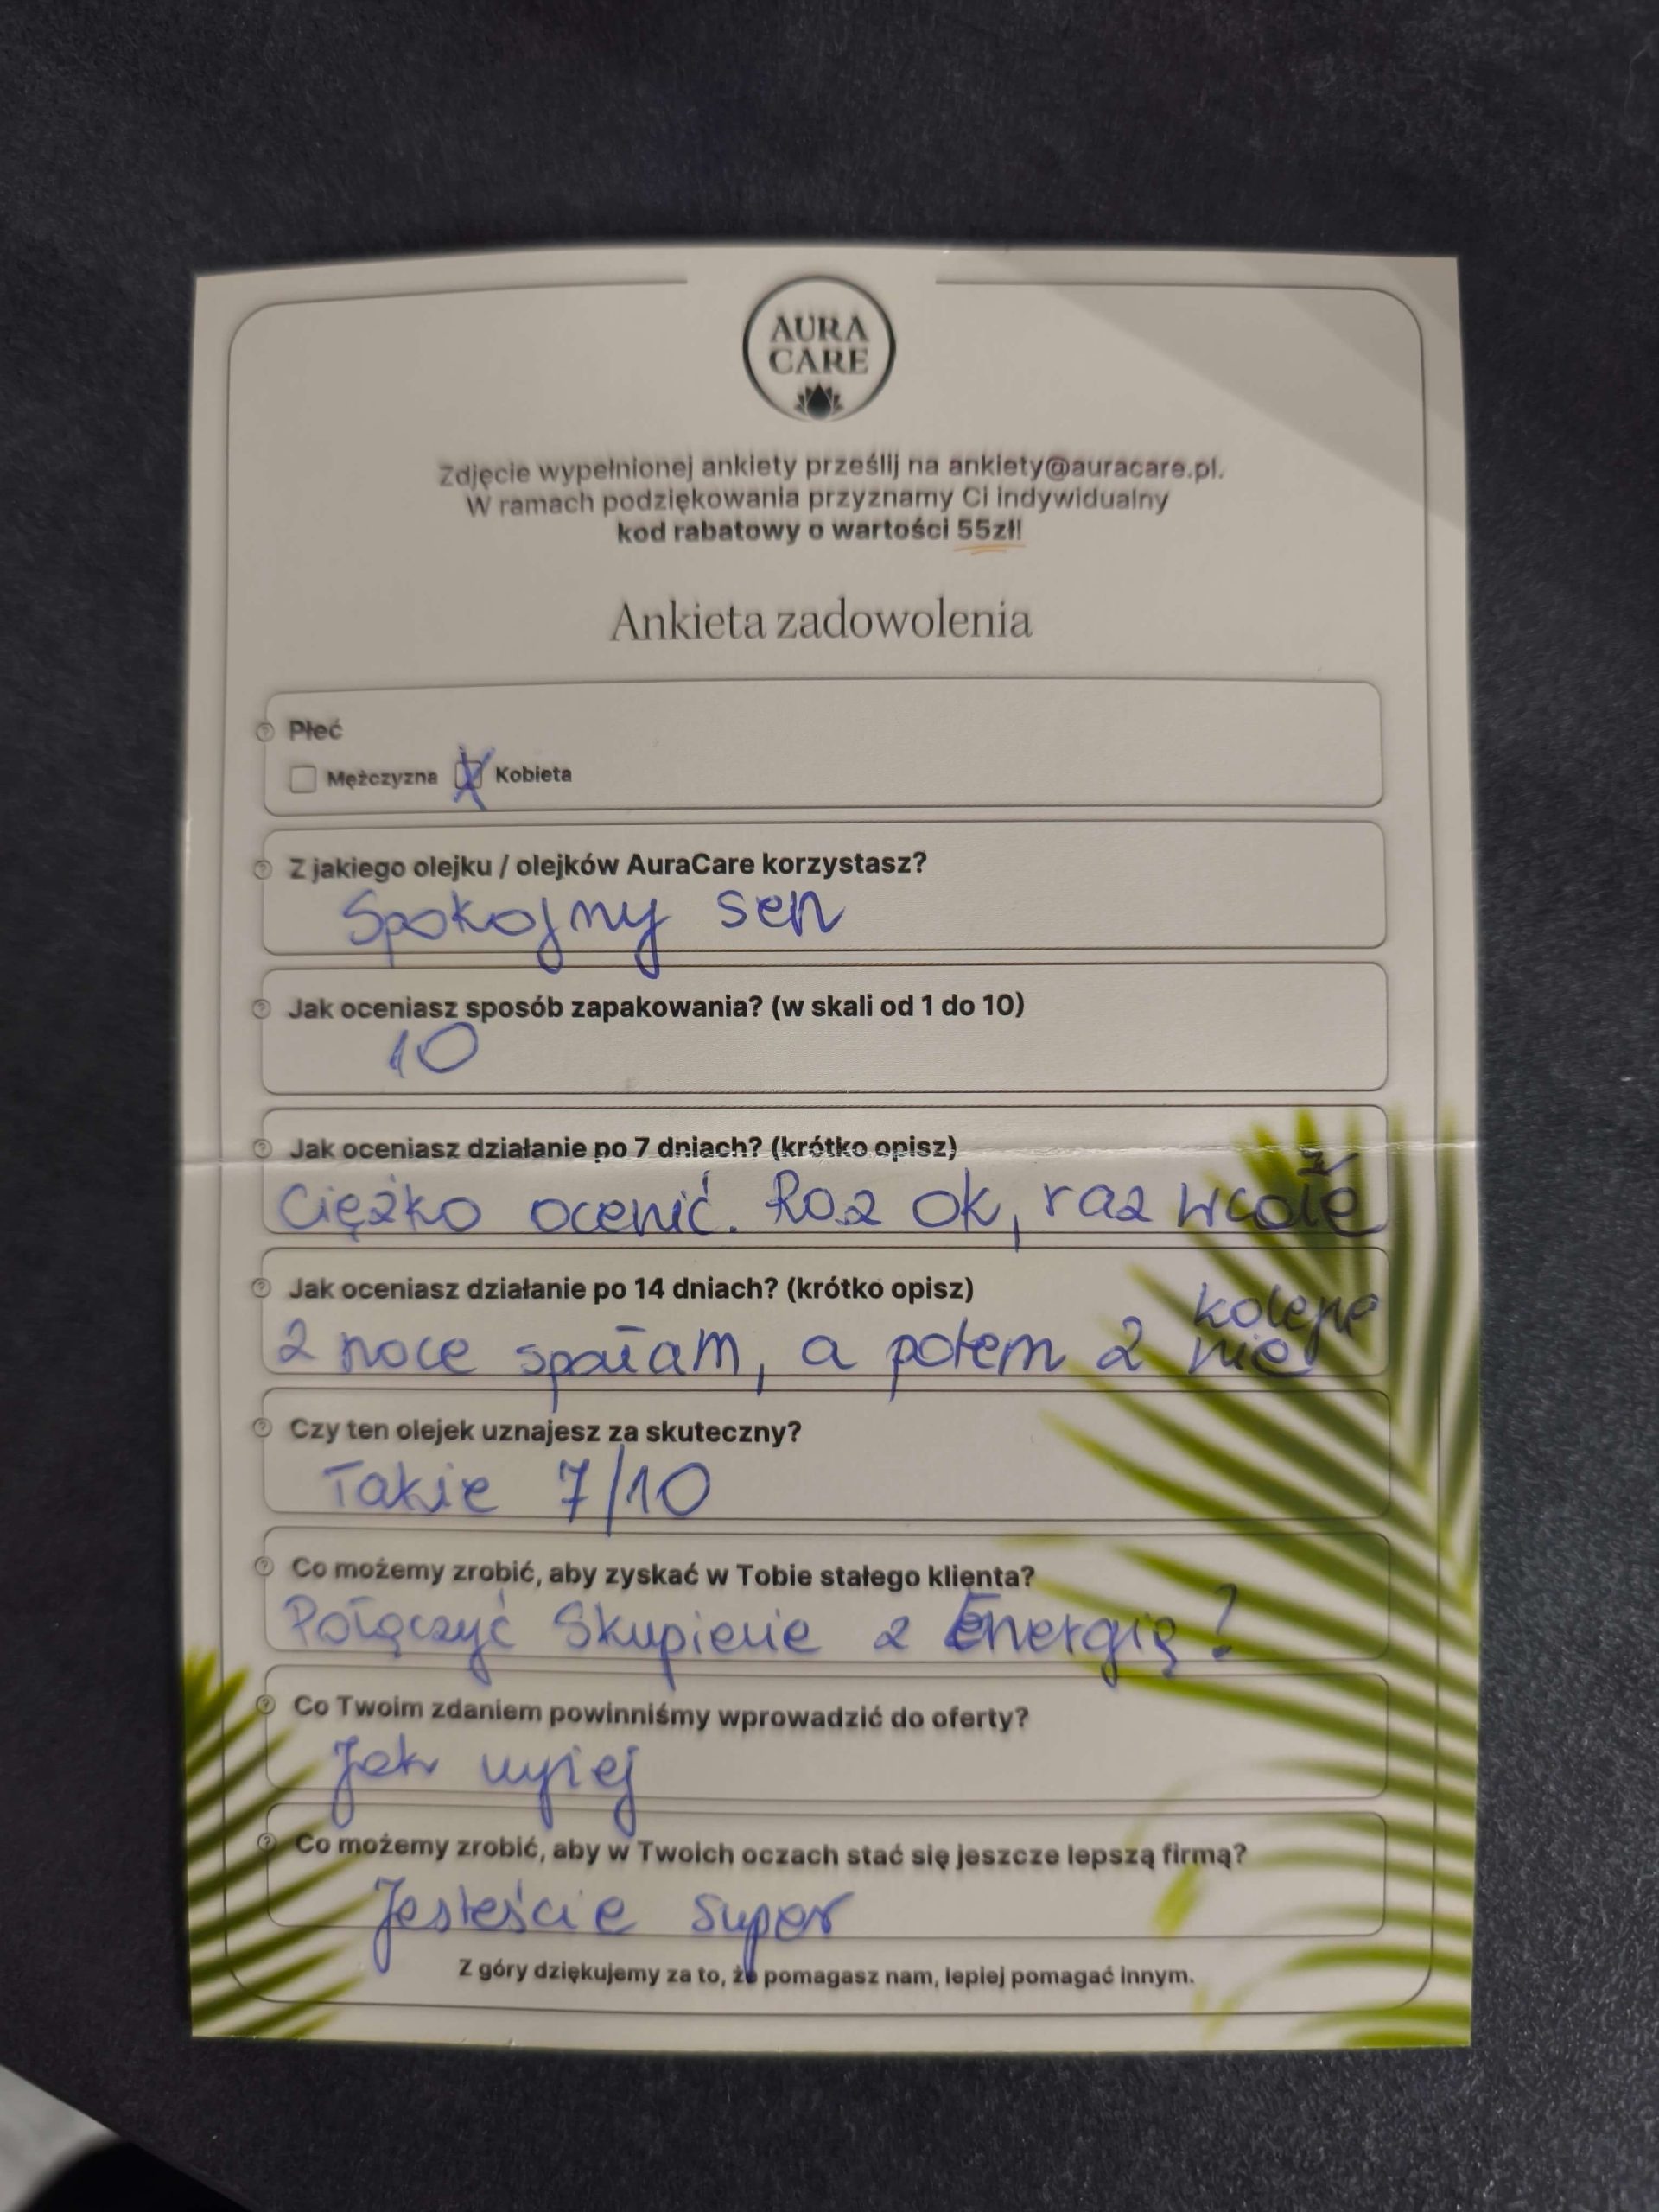 AURA
CARE
Zdjęcie wypełnionej ankiety prześlij na ankiety@auracare.pl.
W ramach podziękowania przyznamy Ci indywidualny
kod rabatowy o wartości 55zł!
Ankieta zadowolenia
Płeć
Mężczyzna X Kobieta
Z jakiego olejku / olejków AuraCare korzystasz?
Spokojny sen
Jak oceniasz sposób zapakowania? (w skali od 1 do 10)
10
Jak oceniasz działanie po 7 dniach? (krótko opisz)
Ciężko ocenić. Raz ok, raz wcale
Jak oceniasz działanie po 14 dniach? (krótko opisz)
2 noce spałam, a potem 2 kolejne nie
Czy ten olejek uznajesz za skuteczny?
Takie 7/10
Co możemy zrobić, aby zyskać w Tobie stałego klienta?
Połączyć Skupienie z Energią?
Co Twoim zdaniem powinniśmy wprowadzić do oferty?
Jak wyżej
Co możemy zrobić, aby w Twoich oczach stać się jeszcze lepszą firmą?
Jesteście super
Z góry dziękujemy za to, że pomagasz nam, lepiej pomagać innym.